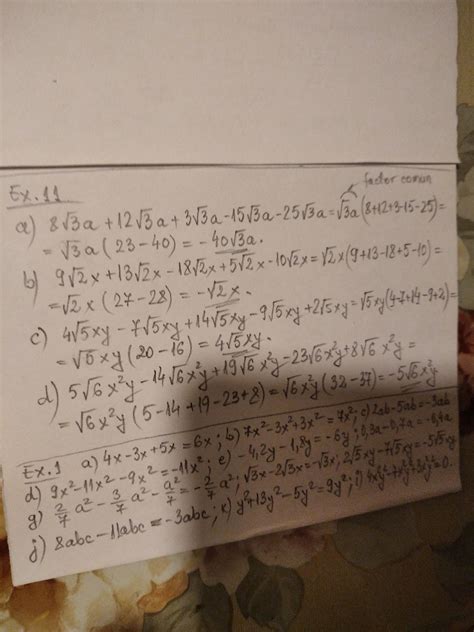 factor comun
Ex.11
a) 8√3a + 12√3a + 3√3a - 15√3a - 25√3a = √3a (8+12+3-15-25) =
= √3a (23-40) = -40√3a.
b) 9√2x + 13√2x - 18√2x + 5√2x - 10√2x = √2x (9+13-18+5-10) =
= √2x (27-28) = -√2x.
c) 4√5xy - 7√5xy + 14√5xy - 9√5xy + 2√5xy = √5xy (4-7+14-9+2) =
= √5xy (20-16) = 4√5xy.
d) 5√6x²y - 14√6x²y + 19√6x²y - 23√6x²y + 8√6x²y =
= √6x²y (5-14+19-23+8) = √6x²y (32-37) = -5√6x²y
Ex.1 a) 4x-3x+5x = 6x; b) 7x²-3x²+3x² = 7x²; c) 2ab-5ab = -3ab
d) 9x²-11x²-9x² = -11x²; e) -4,2y-1,8y = -6y; 0,3a-0,7a = -0,4a
g) 2/7 a² - 3/7 a² - a²/7 = -2/7 a²; √3x-2√3x = -√3x; 2√5xy-7√5xy = -5√5xy
j) 8abc-11abc = -3abc; k) y²+13y²-5y² = 9y²; i) 4xy²-7xy²+3xy² = 0.